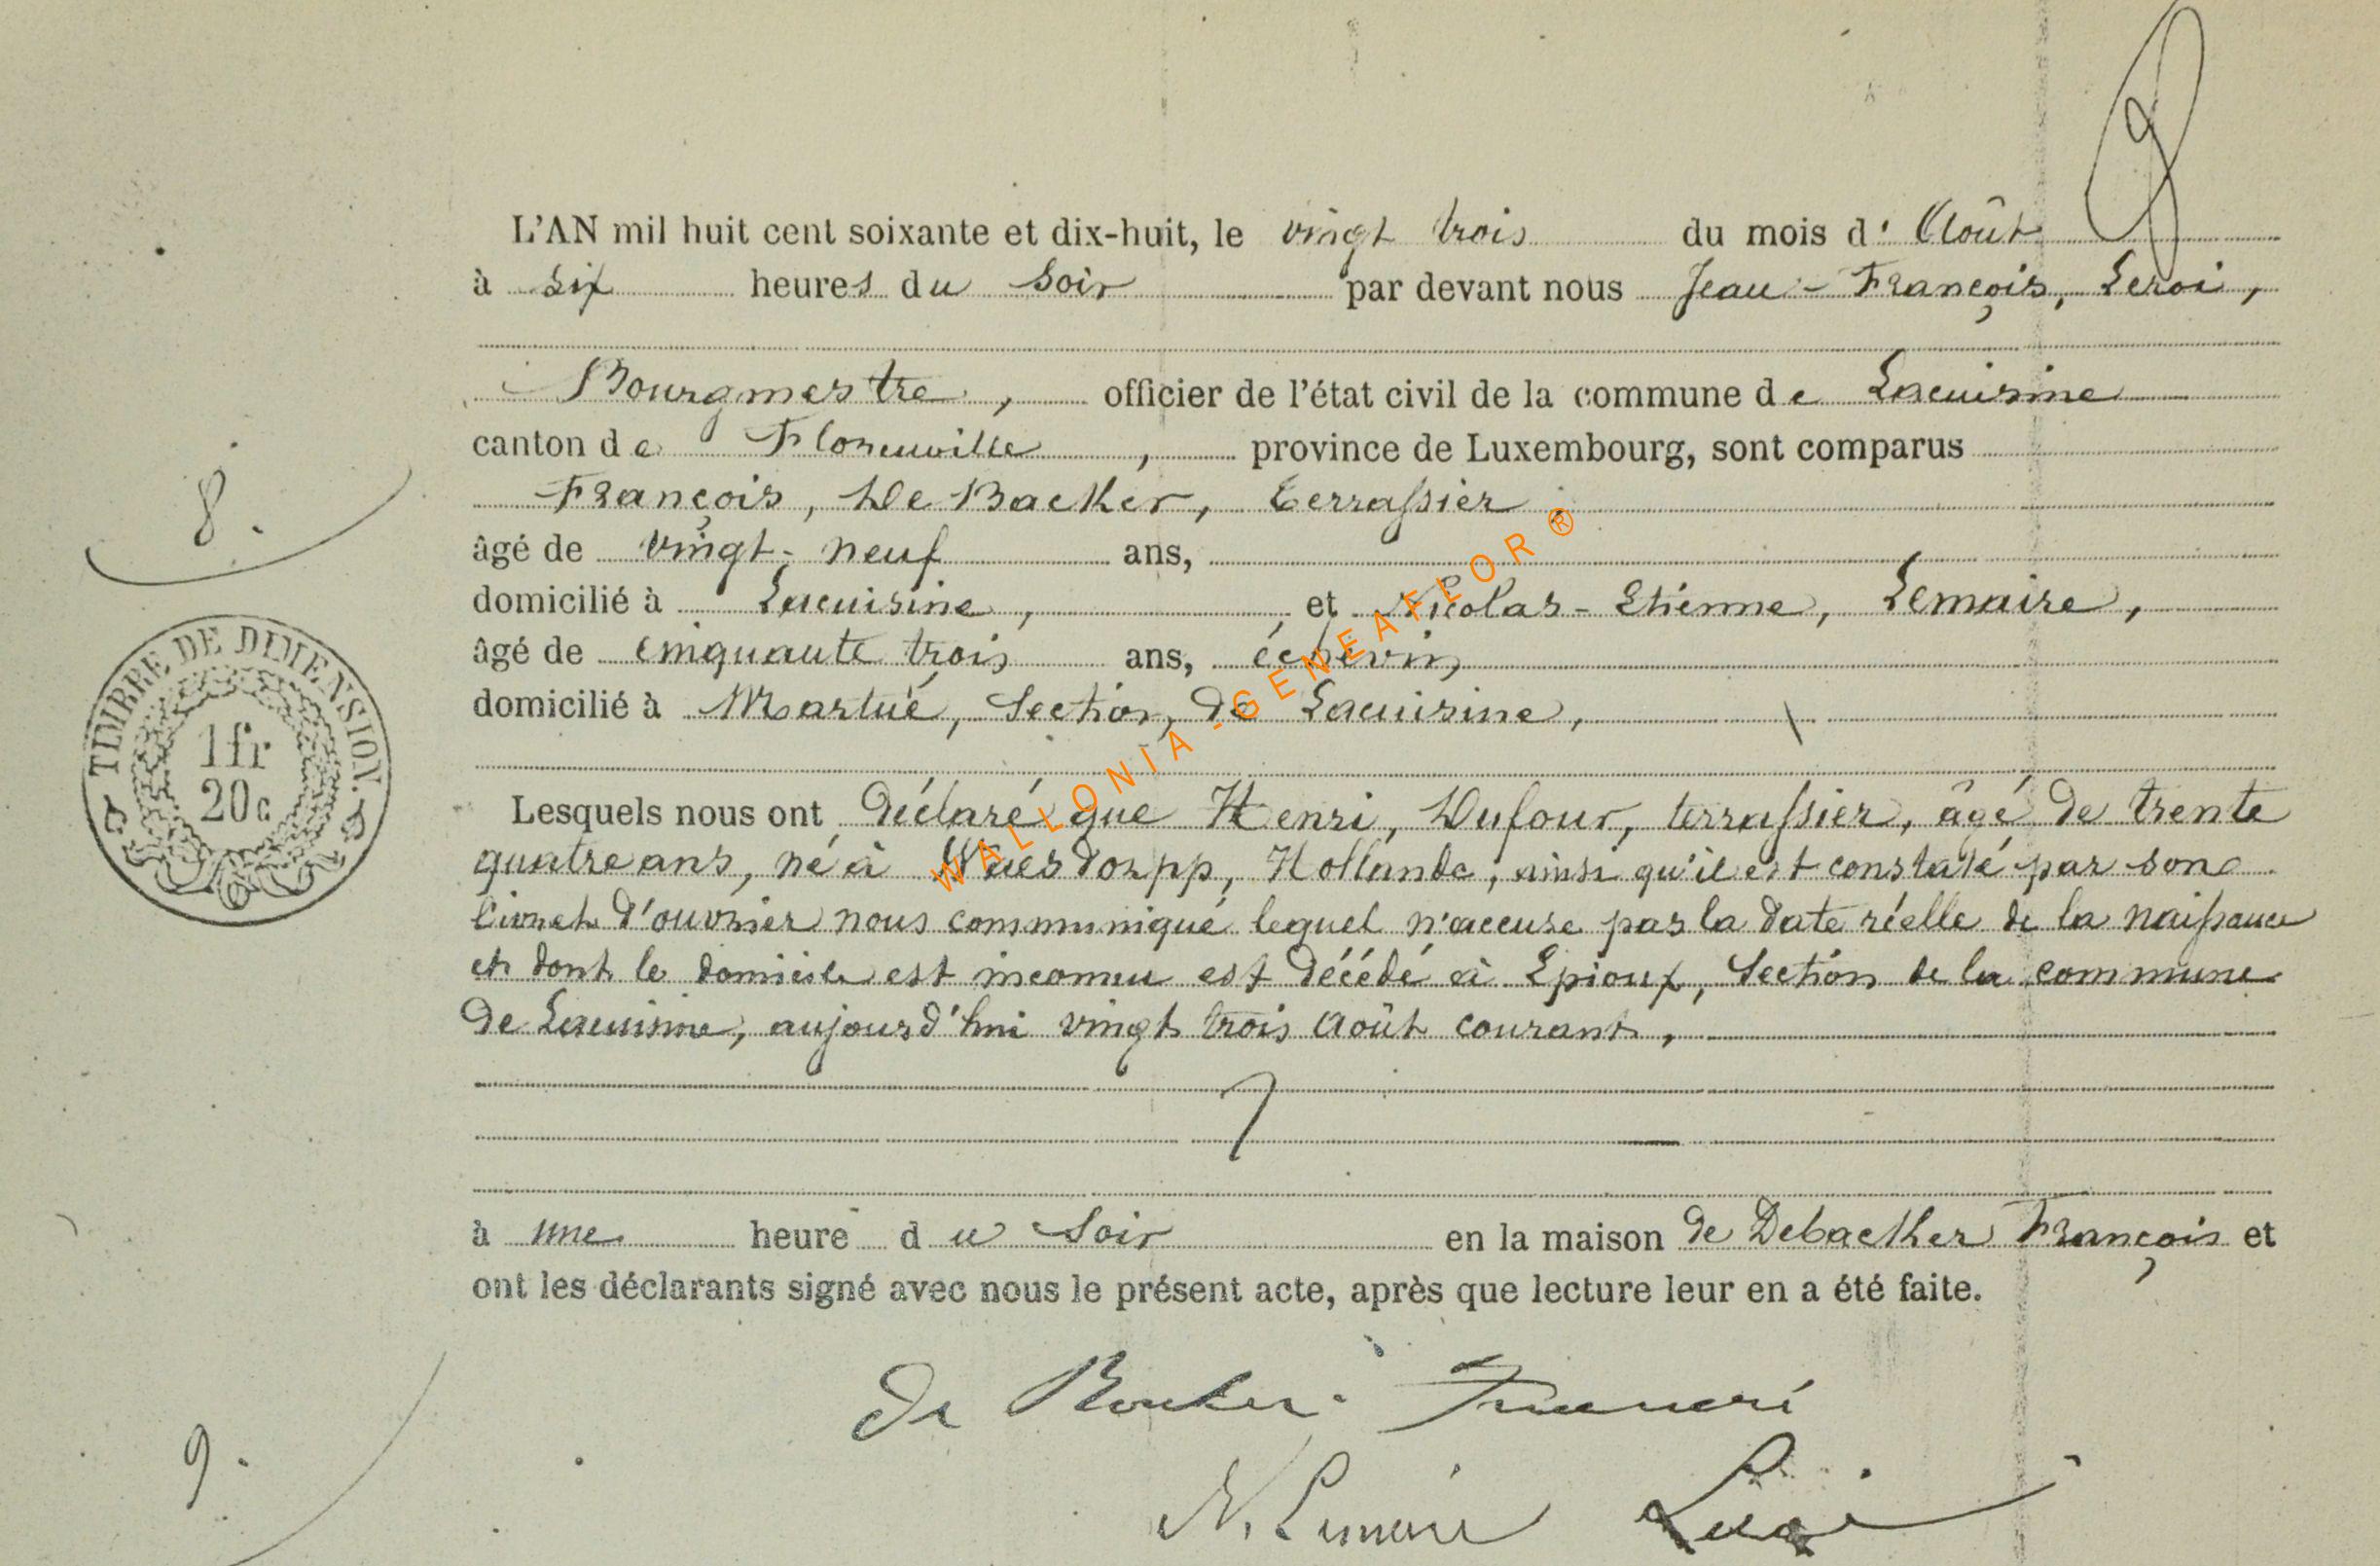 L'AN mil huit cent soixante et dix-huit, le vingt trois du mois d' Août
à six heures du soir par devant nous Jean-François, Leroi,
Bourgmestre, officier de l'état civil de la commune de Lacuisine
canton de Florenville, province de Luxembourg, sont comparus
François, De Backer, terrassier
âgé de vingt-neuf ans,
domicilié à Lacuisine, et Nicolas-Etienne, Lemaire,
âgé de cinquante trois ans, échevin,
domicilié à Martué, Section, de Lacuisine,
8.
TIMBRE DE DIMENSION.
1 fr
20 c
Lesquels nous ont déclaré que Henri, Dufour, terrassier, âgé de trente
quatre ans, né à Waesdorpp, Hollande, ainsi qu'il est constaté par son
livret d'ouvrier nous communiqué lequel n'accuse pas la date réelle de la naissance
et dont le domicile est inconnu est décédé à Epioux, Section de la commune
de Lacuisine, aujourd'hui vingt trois Août courant,
à une heure du soir en la maison de Debacker François et
ont les déclarants signé avec nous le présent acte, après que lecture leur en a été faite.
De Backer
N. Lemaire Leroi
9.
WALLONIA-GENEAFLOR ®